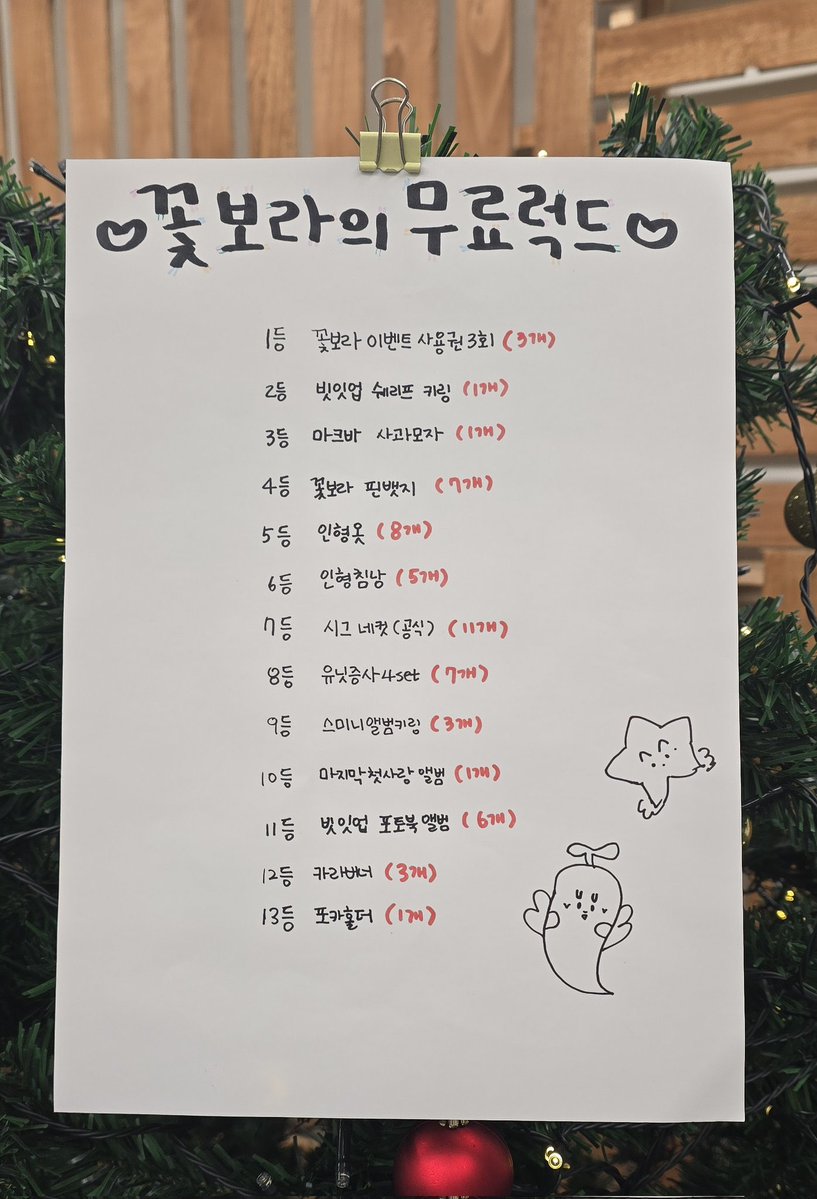 ♡꽃보라의 무료럭드♡
1등 꽃보라 이벤트 사용권 3회 (3개)
2등 빗잇업 쉐리프 키링 (1개)
3등 마크바 사과모자 (1개)
4등 꽃보라 핀뱃지 (7개)
5등 인형옷 (8개)
6등 인형침낭 (5개)
7등 시그 네컷 (공식) (11개)
8등 유닛증사 4set (7개)
9등 스미니앨범키링 (3개)
10등 마지막첫사랑 앨범 (1개)
11등 빗잇업 포토북 앨범 (6개)
12등 카라비너 (3개)
13등 포카홀더 (1개)